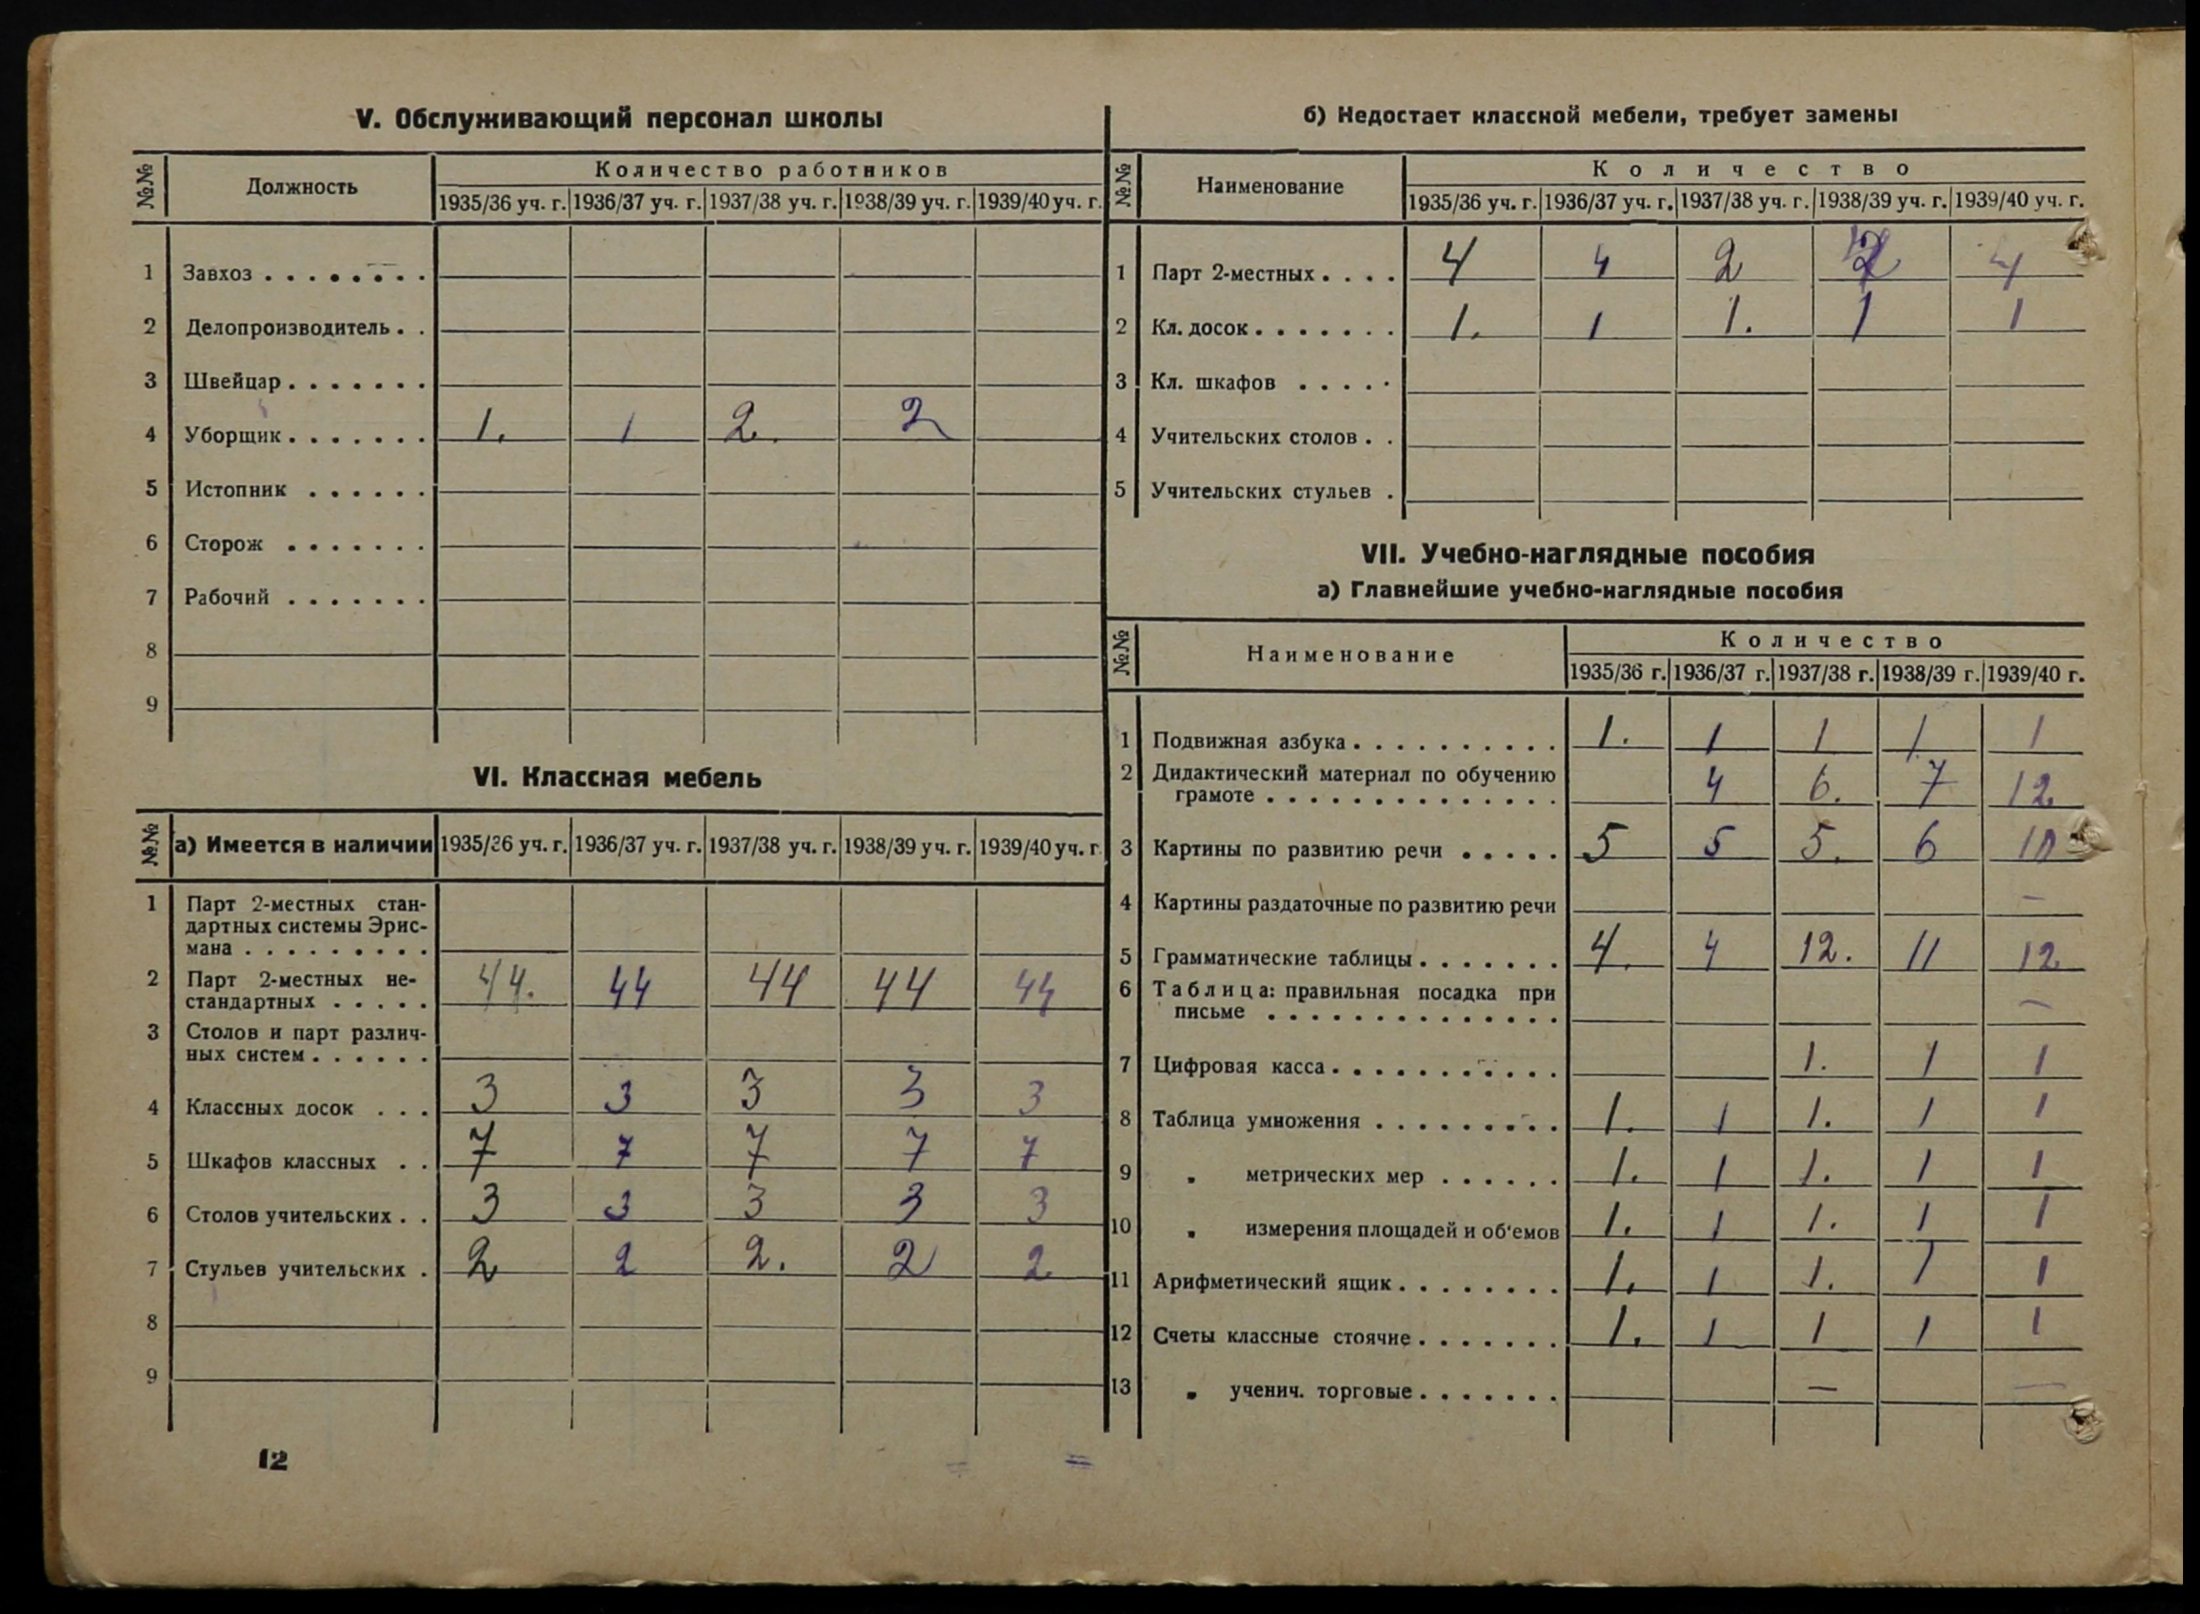 V. Обслуживающий персонал школы
№№ Должность Количество работников
1935/36 уч. г. 1936/37 уч. г. 1937/38 уч. г. 1938/39 уч. г. 1939/40 уч. г.
1 Завхоз . . . . . . . .
2 Делопроизводитель . .
3 Швейцар . . . . . . .
4 Уборщик . . . . . . . 1. 1 2. 2
5 Истопник . . . . . .
6 Сторож . . . . . . .
7 Рабочий . . . . . . .
8
9
VI. Классная мебель
№№ а) Имеется в наличии 1935/36 уч. г. 1936/37 уч. г. 1937/38 уч. г. 1938/39 уч. г. 1939/40 уч. г.
1 Парт 2-местных стан-
дартных системы Эрис-
мана . . . . . . . . .
2 Парт 2-местных не-
стандартных . . . . . 44. 44 44 44 44
3 Столов и парт различ-
ных систем . . . . . .
4 Классных досок . . . 3 3 3 3 3
5 Шкафов классных . . 7 7 7 7 7
6 Столов учительских . . 3 3 3 3 3
7 Стульев учительских . 2 2 2. 2 2
8
9
12
б) Недостает классной мебели, требует замены
№№ Наименование Количество
1935/36 уч. г. 1936/37 уч. г. 1937/38 уч. г. 1938/39 уч. г. 1939/40 уч. г.
1 Парт 2-местных . . . . 4 4 2 2 4
2 Кл. досок . . . . . . . 1. 1 1. 1 1
3 Кл. шкафов . . . . .
4 Учительских столов . .
5 Учительских стульев .
VII. Учебно-наглядные пособия
а) Главнейшие учебно-наглядные пособия
№№ Наименование Количество
1935/36 г. 1936/37 г. 1937/38 г. 1938/39 г. 1939/40 г.
1 Подвижная азбука . . . . . . . . . . 1. 1 1 1 1
2 Дидактический материал по обучению
грамоте . . . . . . . . . . . . . . 4 6. 7 12
3 Картины по развитию речи . . . . . 5 5 5. 6 10
4 Картины раздаточные по развитию речи —
5 Грамматические таблицы . . . . . . . 4. 4 12. 11 12
6 Таблица: правильная посадка при
письме . . . . . . . . . . . . . . —
7 Цифровая касса . . . . . . . . . . . 1. 1 1
8 Таблица умножения . . . . . . . . . 1. 1 1. 1 1
9 „ метрических мер . . . . . . 1. 1 1. 1 1
10 „ измерения площадей и об'емов 1. 1 1. 1 1
11 Арифметический ящик . . . . . . . . 1. 1 1. 1 1
12 Счеты классные стоячие . . . . . . . 1. 1 1 1 1
13 „ ученич. торговые . . . . . . . — —